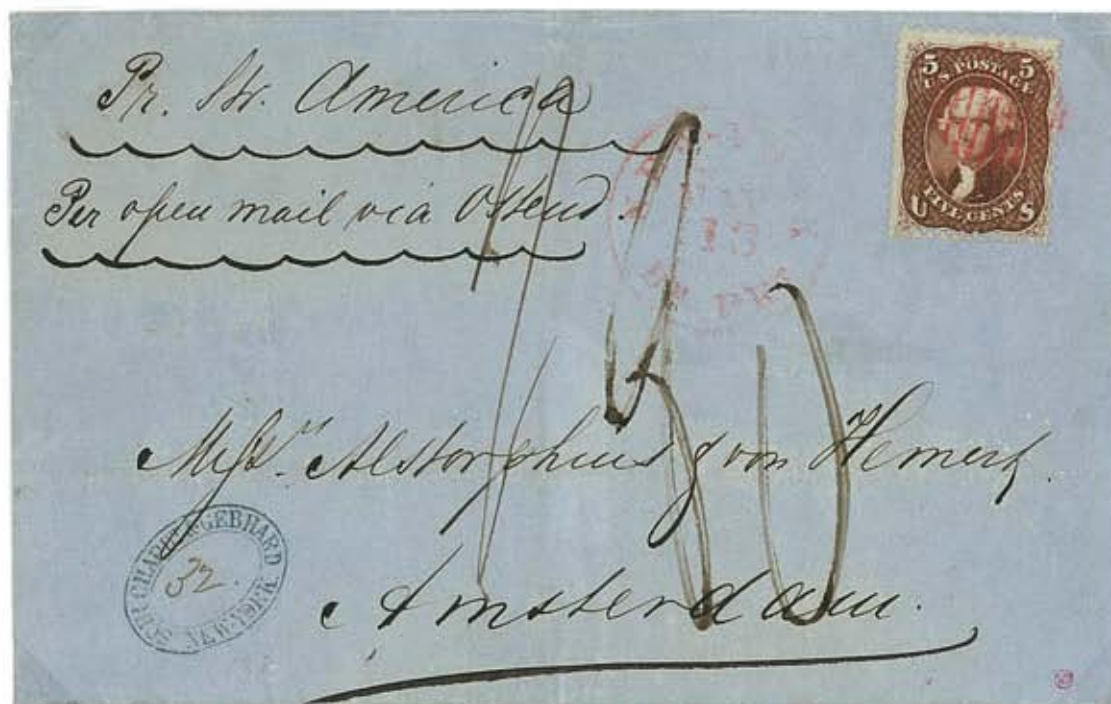 Pr. Str. America
Per open mail via Ostend.
5 5
U.S. POSTAGE
FIVE CENTS
U S
Messrs. Alstorphius & von Hemert.
Amsterdam.
SCHUCHARDT & GEBHARD
32.
NEW-YORK